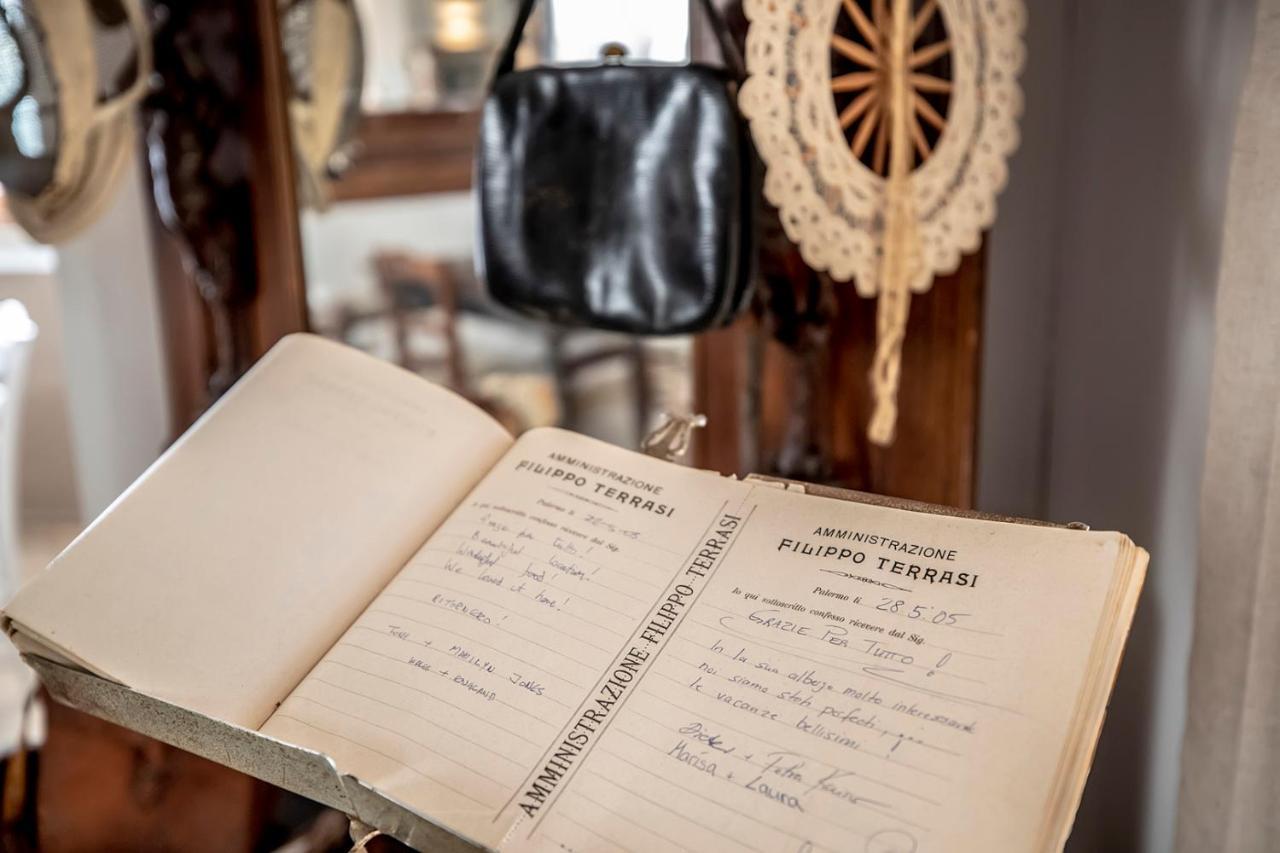 AMMINISTRAZIONE
FILIPPO TERRASI
Palermo li
io qui sottoscritto confesso ricevere dal Sig.
tutto!
Beautiful location!
Wonderful food!
We loved it here!
RITORNERO!
TONI + MARILYN JONES
+ ENGLAND
AMMINISTRAZIONE FILIPPO TERRASI
AMMINISTRAZIONE
FILIPPO TERRASI
Palermo li 28.5.05
Io qui sottoscritto confesso ricevere dal Sig.
GRAZIE PER TUTTO!
In la sua albergo molto interessante
noi siamo stati perfecti,
le vacanze bellisimi!
+ Petra
Marisa + Laura